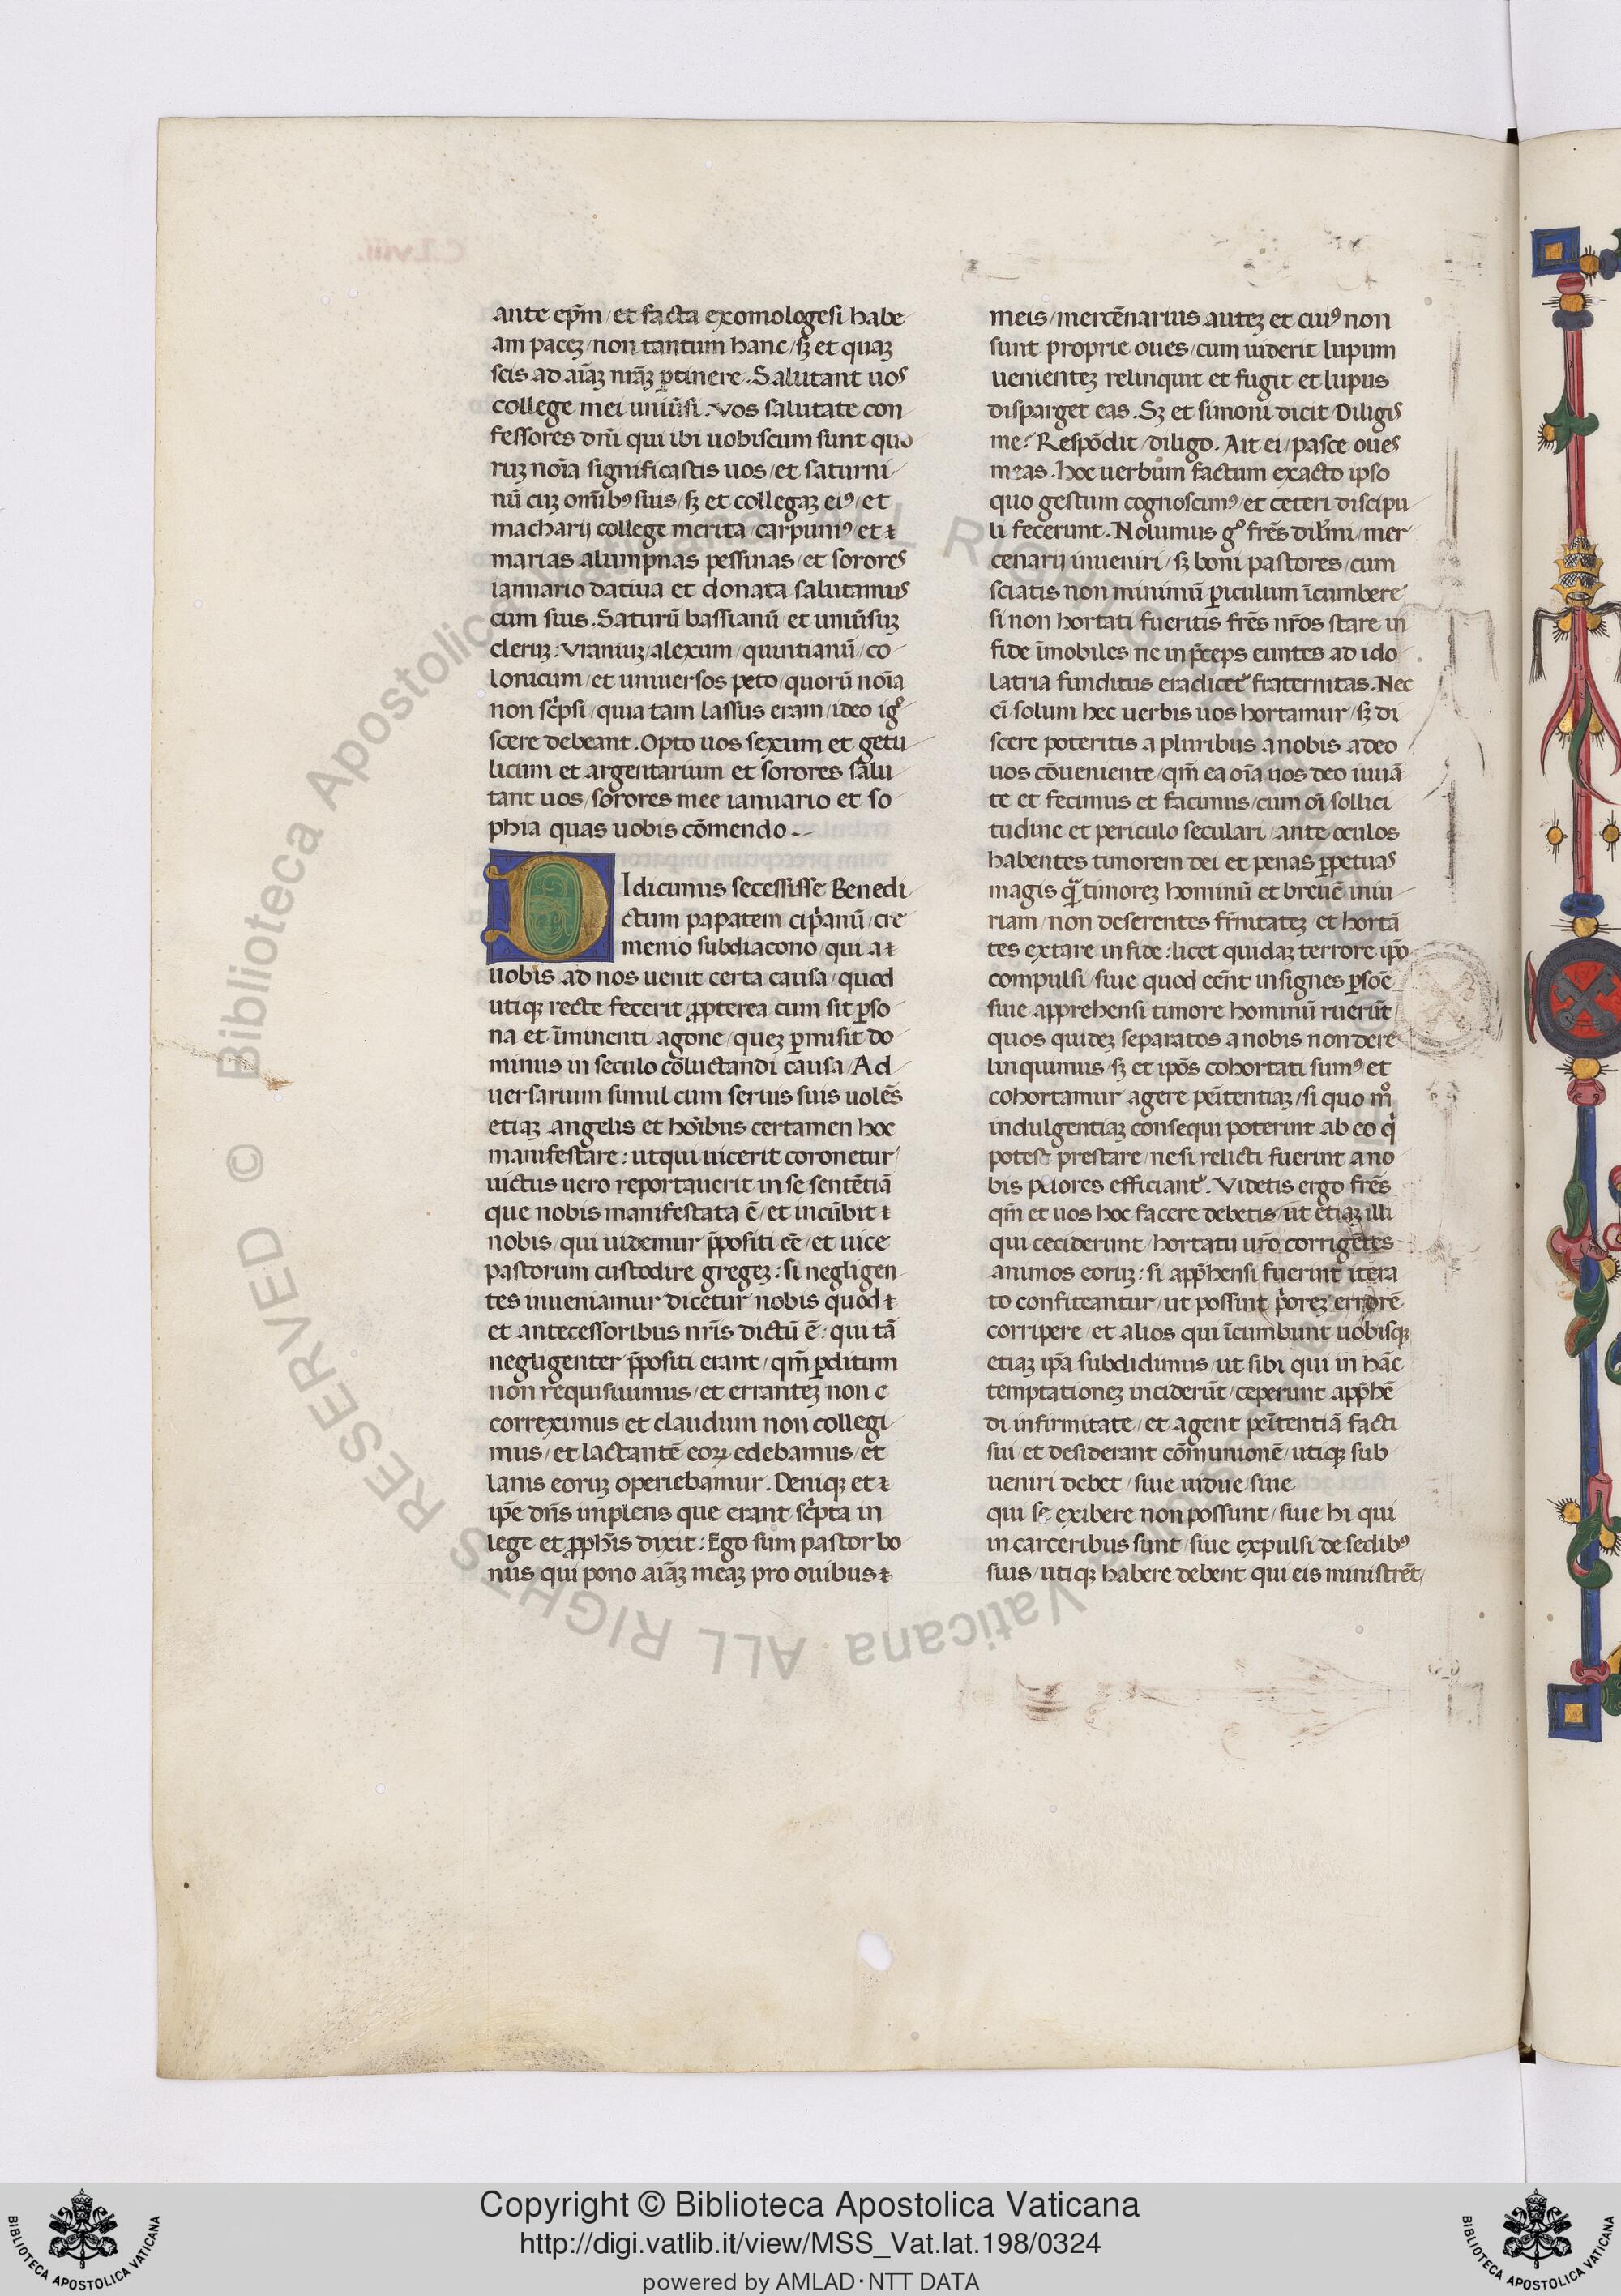 ante ep̄m / et facta exomologesi habe
am paceꝫ / non tantum hanc / sꝫ et quaꝫ
scis ad aīaꝫ nrāꝫ ꝑtinere . Salutant uos
college mei uniūsi . Vos salutate con
fessores dn̄i qui ibi uobiscum sunt quo
ruꝫ noīa significastis uos / et saturni
nū cuꝫ om̄ibꝰ suis / sꝫ et collegaꝫ eiꝰ / et
macharij college merita / carpuniꝰ / et
marias alumpnas pessinas / et sorores
ianuario datiua et donata salutamus
cum suis . Saturū bassianū et uniūsuꝫ
cleruꝫ : vraniuꝫ / alexum / quintianū / co
lonicum / et uniuersos peto / quorū noīa
non sc̓psi / quia tam lassus eram / ideo igͦ
scere debeant . Opto uos sexum et getu
licum et argentarium et sorores salu
tant uos / sorores mee ianuario et so
phia quas uobis cōmendo
DIdicimus secessisse Benedi
ctum papatem cip̓anū / cre
menio subdiacono / qui a
uobis ad nos uenit certa causa / quod
utiqꝫ recte fecerit ꝓpterea cum sit ꝑso
na et īminenti agone / queꝫ ꝑmisit do
minus in seculo cōluctandi causa / Ad
uersarium simul cum seruis suis uolēs
etiaꝫ angelis et hoībus certamen hoc
manifestare : utqui uicerit coronetur /
uictus uero reportauerit in se sentētiā
que nobis manifestata ē / et incūbit
nobis / qui uidemur p̄positi eē / et uice
pastorum custodire gregeꝫ : si negligen
tes inueniamur dicetur nobis quod
et antecessoribus nr̄is dictū ē : qui tā
negligenter p̄positi erant / qm̄ ꝑditum
non requisiuimus / et erranteꝫ non c
correximus et claudum non collegi
mus / et lactantē eoꝝ edebamus / et
lanis eoruꝫ operiebamur . Deniqꝫ et
ip̄e dn̄s implens que erant sc̓pta in
lege et ꝓph̄is dixit : Ego sum pastor bo
nus qui pono aīaꝫ meaꝫ pro ouibus
meis / mercēnarius auteꝫ et cuiꝰ non
sunt proprie oues / cum uiderit lupum
uenienteꝫ relinquit et fugit et lupus
disparget eas . Sꝫ et simoni dicit / Diligis
me : Respōdit / diligo . Ait ei / pasce oues
meas . hoc uerbum factum exacto ipso
quo gestum cognoscimꝰ / et ceteri discipu
li fecerunt . Nolumus gͦ frēs dil̄mi / mer
cenarij inueniri / sꝫ boni pastores / cum
sciatis non minimū ꝑiculum īcumbere
si non hortati fueritis frēs nr̄os stare in
fide īmobiles / ne in p̄ceps euntes ad ido
latria funditus eradicet᷑ fraternitas . Nec
ei solum hec uerbis uos hortamur / sꝫ di
scere poteritis a pluribus a nobis adeo
uos cōueniente / qm̄ ea oīa uos deo iuuā
te et fecimus et facimus / cum oī sollici
tudine et periculo seculari / ante oculos
habentes timorem dei et penas ꝑpetuas
magis q̄ timoreꝫ hominū et breuē iniu
riam / non deserentes fr̄nitateꝫ / et hortā
tes extare in fide : licet quidaꝫ terrore ip̄o
compulsi / siue quod cēnt insignes ꝑsoē
siue apprehensi timore hominū ruerūt
quos quideꝫ separatos a nobis non dere
linquimus / sꝫ et ip̄os cohortati sumꝰ et
cohortamur agere penītentiaꝫ / si quo mͦ
indulgentiaꝫ consequi poterint ab eo q̓
potest prestare / ne si relicti fuerint a no
bis peiores efficiant᷑ . Videtis ergo frēs
qm̄ et uos hoc facere debetis / ut etiaꝫ illi
qui ceciderunt / hortatu ur̄o corrigētes
animos eoruꝫ : si app̄hensi fuerint itera
to confiteantur / ut possint p̓oreꝫ errorē
corripere / et alios qui īcumbunt uobisqꝫ
etiaꝫ ip̄a subdidimus / ut sibi qui in hāc
temptationeꝫ inciderūt / ceperunt app̄hē
di infirmitate / et agent penītentiā facti
sui et desiderant cōmunionē / utiqꝫ sub
ueniri debet / siue uidue / siue
qui se exibere non possunt / siue hi qui
in carceribus sunt / siue expulsi de sedibꝰ
suis / utiqꝫ habere debent qui eis ministrēt /
Copyright © Biblioteca Apostolica Vaticana
http://digi.vatlib.it/view/MSS_Vat.lat.198/0324
powered by AMLAD·NTT DATA